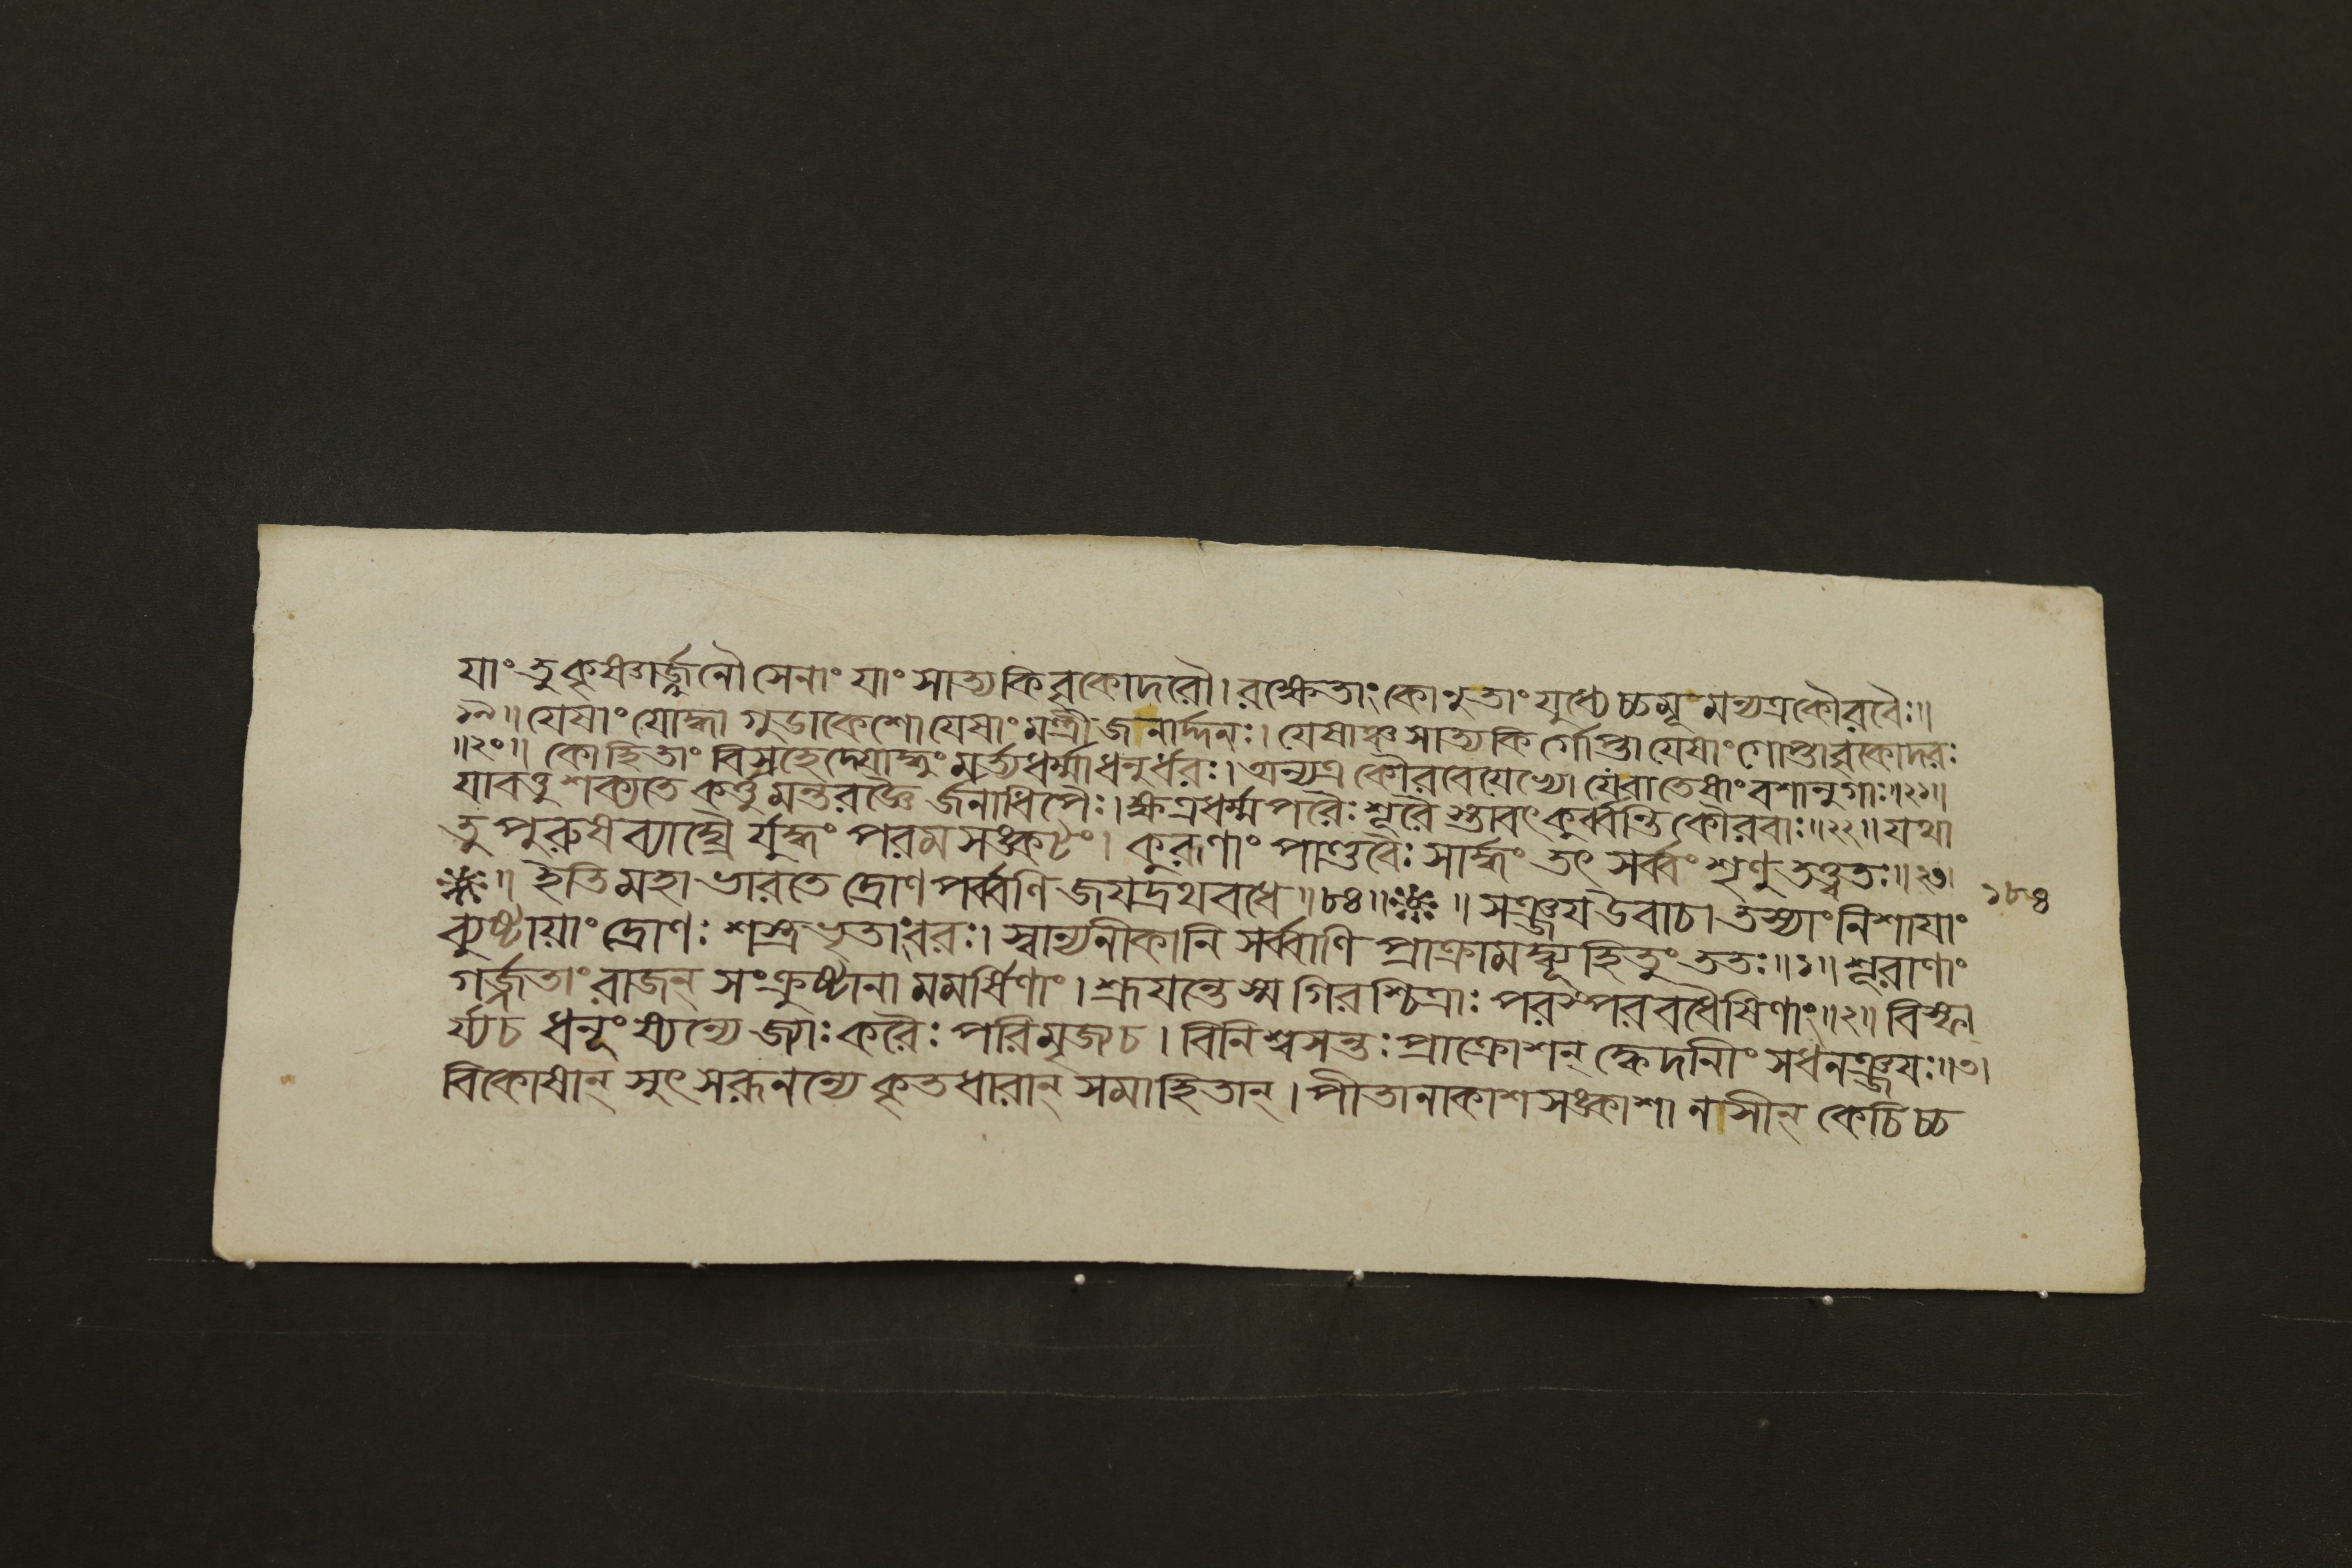 যাং তু কৃষ্ণার্জ্জুনৌ সেনাং যাং সাত্যকি বৃকোদরৌ। রক্ষেতাং কোনুতাং যুধ্যেচ্চমূ মন্যত্র কৌরবৈঃ॥
১৯॥ যেষাং যোদ্ধা গুডাকেশো যেষাং মন্ত্রী জনার্দ্দনঃ। যেষাঞ্চ সাত্যকি র্গোপ্তা যেষাং গোপ্তা বৃকোদরঃ
॥২০॥ কোহিতাং বিসহেদ্যোদ্ধুং মর্ত্যধর্ম্মা ধনুর্ধরঃ। অন্যত্র কৌরবেয়েভ্যো যেবাতেষাং বশানুগাঃ॥২১॥
যাবত্তু শক্যতে কর্ত্তু মন্তরজ্ঞৈ র্জনাধিপৈঃ। ক্ষত্রধর্ম্মপরৈঃ শূরৈ স্তাবৎ কুর্ব্বন্তি কৌরবাঃ॥২২॥ যথা
তু পুরুষব্যাঘ্রৈ র্যুদ্ধং পরম সঙ্কটং। কুরূণাং পাণ্ডবৈঃ সার্দ্ধং তৎ সর্ব্বং শৃণু তত্ত্বতঃ॥২৩।
॥ ইতি মহাভারতে দ্রোণপর্ব্বণি জযদ্রথবধে॥৮৪॥ ॥ সঞ্জয উবাচ। তস্যাং নিশাযাং ১৮৪
ব্যুষ্টায়াং দ্রোণঃ শস্ত্রভৃতাংবরঃ। স্বান্যনীকানি সর্ব্বাণি প্রাক্রামদ্ব্যূহিতুং ততঃ॥১॥ শূরাণাং
গর্জ্জতাং রাজন্ সংক্রুষ্টানা মমর্ষিণাং। শ্রূযন্তেস্ম গিরশ্চিত্রাঃ পরস্পরবধৈষিণাং॥২॥ বিস্ফা
র্য্যচ ধনূংষ্যন্যে জ্যাঃ করৈঃ পরিমৃজ্যচ। বিনিশ্বসন্তঃ প্রাক্রোশন্ ক্বেদানীং সধনঞ্জযঃ॥৩।
বিকোষান্ সুৎসরূনন্যে কৃতধারান্ সমাহিতান্। পীতানাকাশসঙ্কাশা নসীন্ কেচিচ্চ